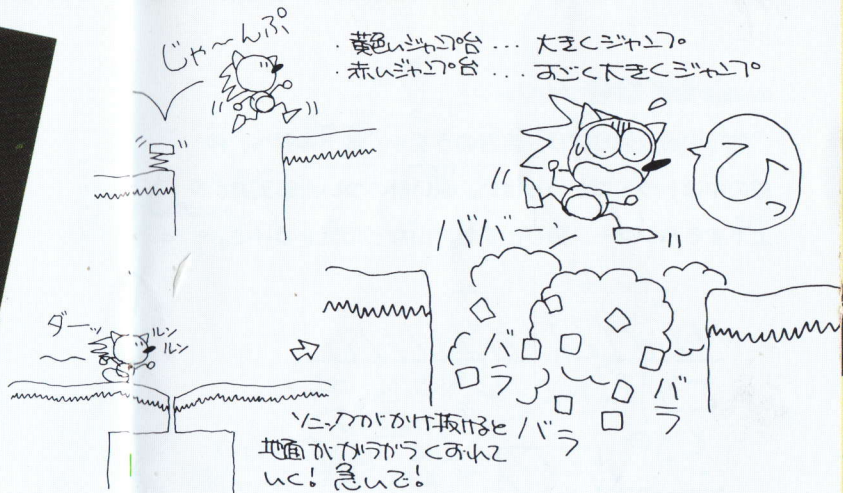 じゃ〜んぷ
・黄色いジャンプ台 ... 大きくジャンプ
・赤いジャンプ台 ... すごく大きくジャンプ
ひっ
ババー
ダーッ
ルン
ルン
バラ
バラ
バラ
ソニックがかけ抜けると
地面がガラガラくずれて
いく! 急いで!